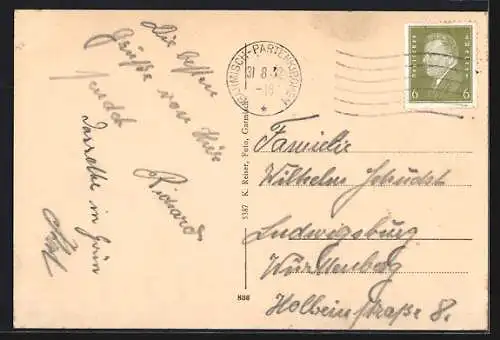 Die besten
Grüße von hier
sendet
Richard
Dasselbe in Grün
GARMISCH-PARTENKIRCHEN
31.8.32
-18
Deutsches Reich
6 6
5387 K. Reiser, Foto, Garmisch
Familie
Wilhelm
Ludwigsburg
Württenberg
Holbeinstraße 8.
888